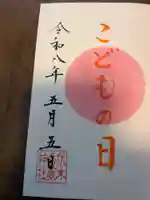 こどもの日
令和八年 五月 五日